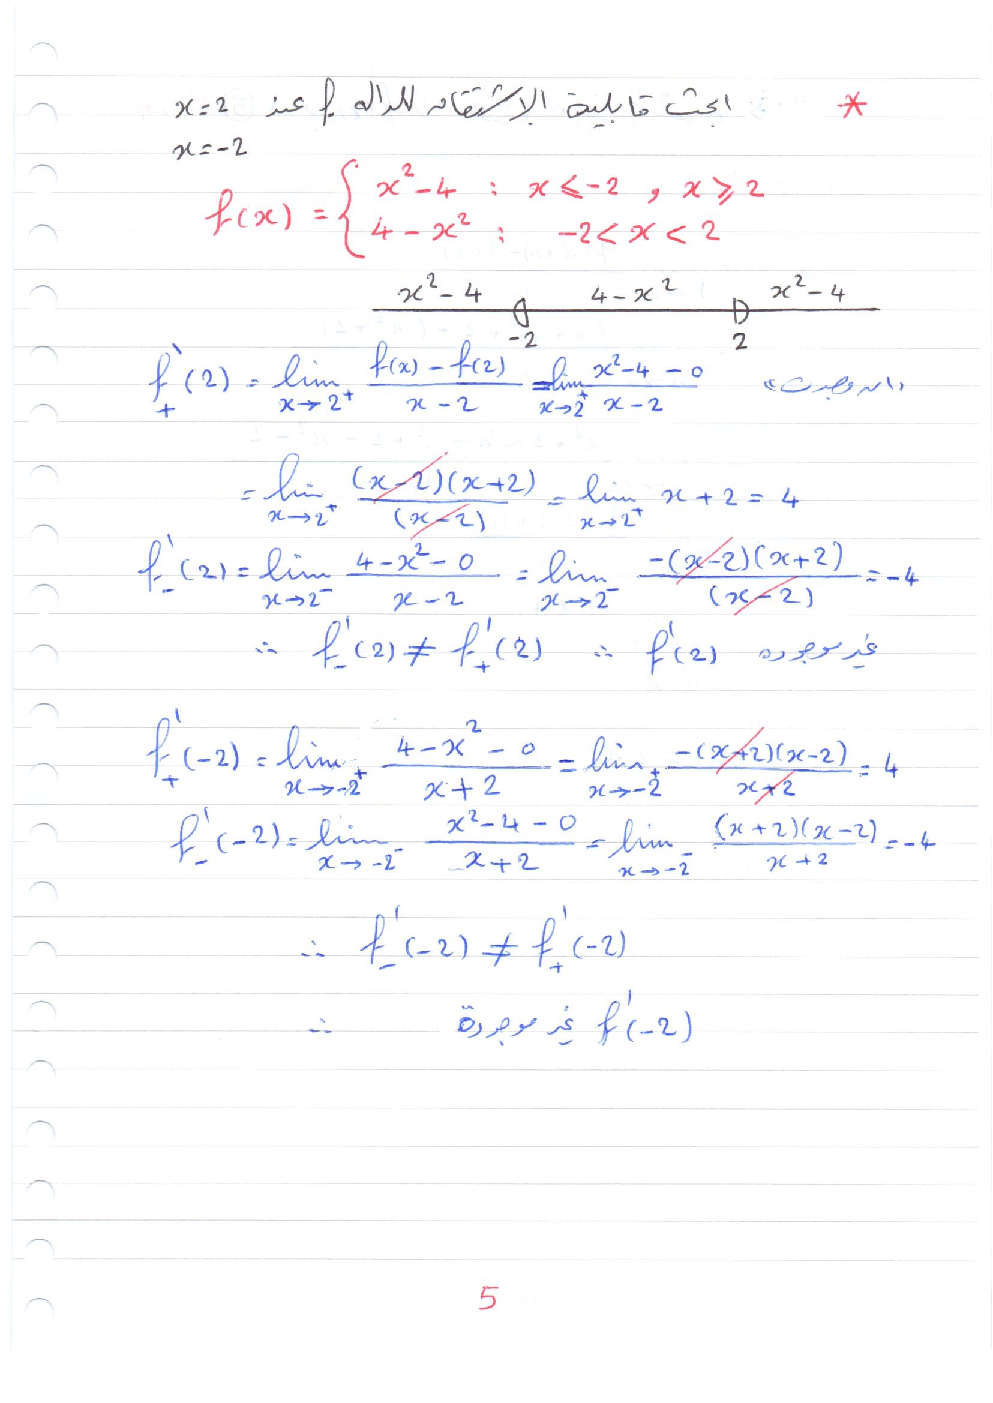 * ابحث قابلية الاشتقاق للدالة f عند x=2
x=-2
f(x) = { x²-4 : x ≤ -2 , x ≥ 2
4 - x² : -2 < x < 2
x²-4 4-x² x²-4
-2 2
f'₊(2) = lim x→2⁺ (f(x) - f(2))/(x-2) = lim x→2⁺ (x²-4-0)/(x-2) "ان وجدت"
= lim x→2⁺ ((x-2)(x+2))/(x-2) = lim x→2⁺ x+2 = 4
f'₋(2) = lim x→2⁻ (4-x²-0)/(x-2) = lim x→2⁻ (-(x-2)(x+2))/(x-2) = -4
∴ f'₋(2) ≠ f'₊(2) ∴ f'(2) غير موجوده
f'₊(-2) = lim x→-2⁺ (4-x²-0)/(x+2) = lim x→-2⁺ (-(x+2)(x-2))/(x+2) = 4
f'₋(-2) = lim x→-2⁻ (x²-4-0)/(x+2) = lim x→-2⁻ ((x+2)(x-2))/(x+2) = -4
∴ f'₋(-2) ≠ f'₊(-2)
∴ f'(-2) غير موجودة
5